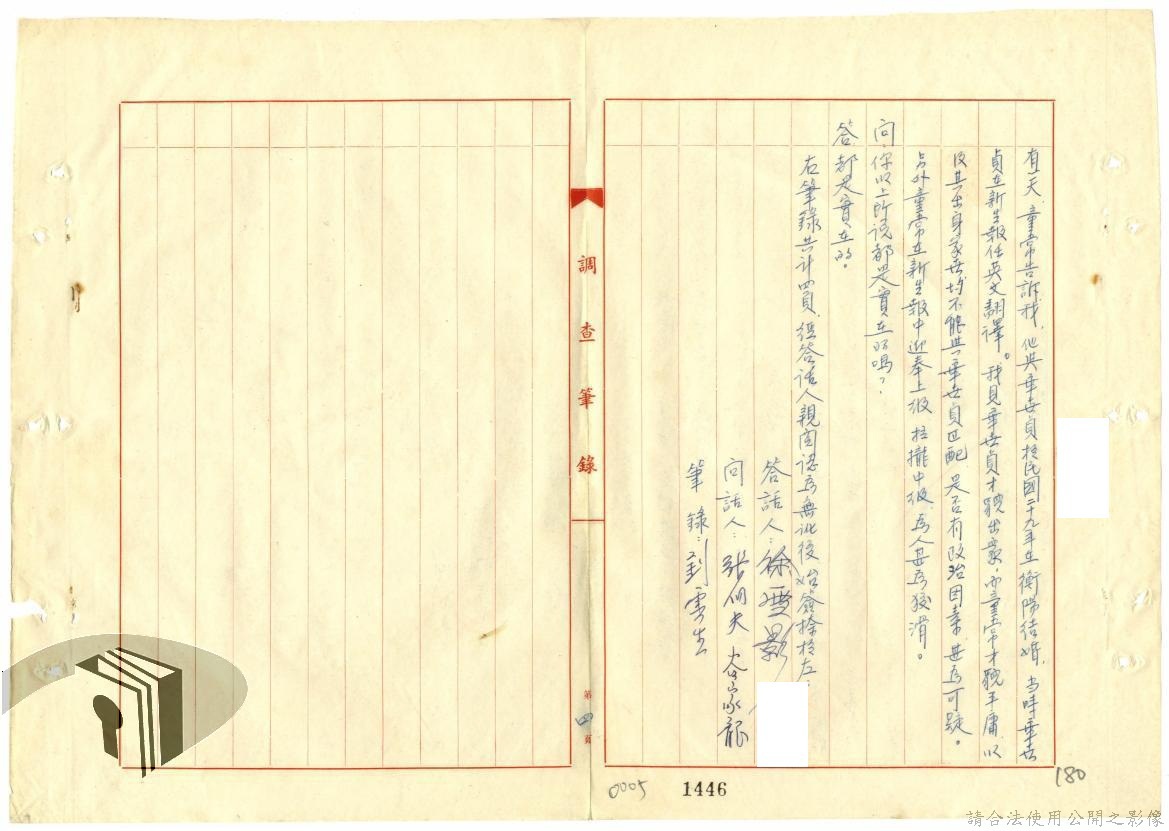 有一天,童常告訴我,他與華世貞於民國二十九年在衡陽結婚,當時華世
貞在新生報任英文翻譯。我見華世貞才貌出眾,而童常才貌平庸,以
及其出身家世均不能與華世貞匹配,是否有政治因素,甚為可疑。
另外童常在新生報中迎奉上級,拉攏中級,為人甚為狡滑。
問:你以上所說都是實在的嗎?
答:都是實在的。
右筆錄共計四頁,經答話人親閱認為無訛後始簽捺於左:
答話人:徐瓊影
問話人:張伯夫 家龍
筆錄:劉雲生
調查筆錄
第四頁
0005
1446
180
請合法使用公開之影像